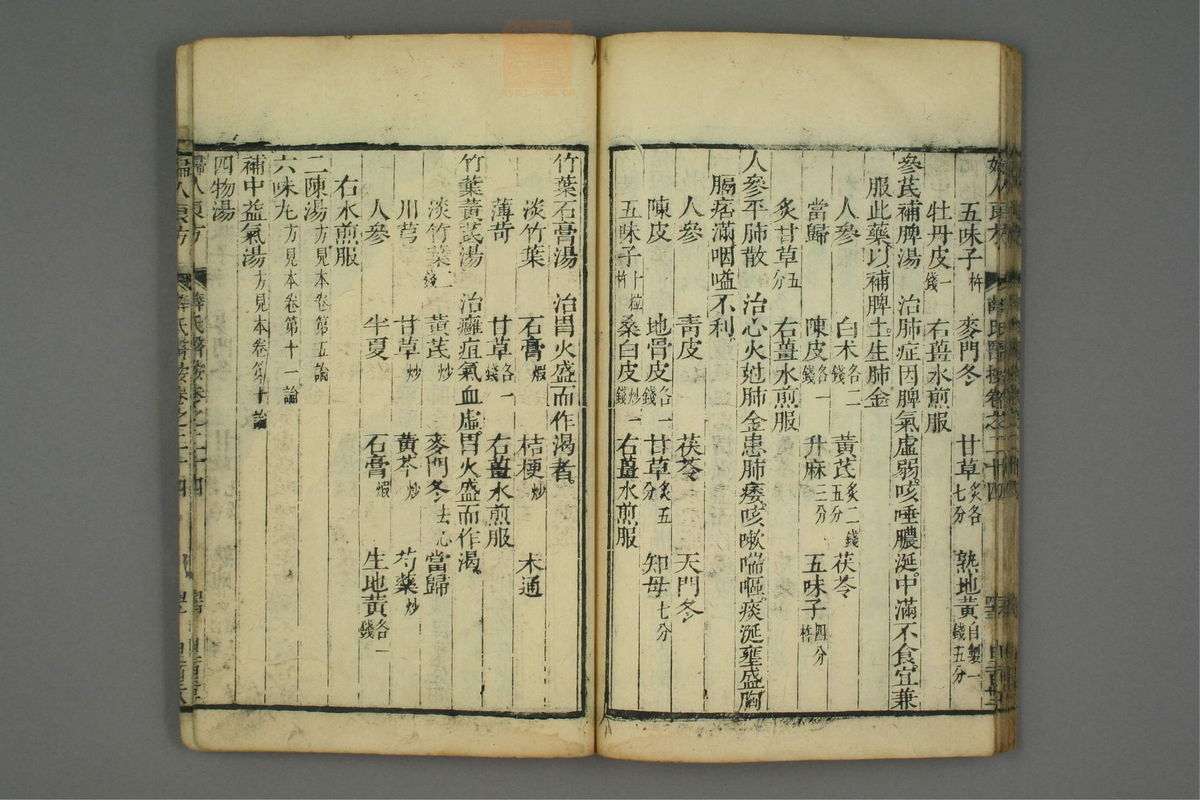 五味子杵 麥門冬 甘草炙各七分 熟地黃自製一錢五分
牡丹皮一錢 右薑水煎服
參芪補脾湯 治肺症因脾氣虛弱咳唾膿涎中滿不食宜兼
服此藥以補脾土生肺金
人參 白朮各二錢 黃芪炙二錢五分 茯苓
當歸 陳皮各一錢 升麻三分 五味子四分杵
炙甘草五分 右薑水煎服
人參平肺散 治心火尅肺金患肺痿咳嗽喘嘔痰涎壅盛胸
膈痞滿咽嗌不利
人參 青皮 茯苓 天門冬
陳皮 地骨皮各一錢 甘草炙五分 知母七分
五味子十粒杵 桑白皮炒一錢 右薑水煎服
竹葉石膏湯 治胃火盛而作渴者
淡竹葉 石膏煆 桔梗炒 木通
薄苛 甘草各一錢 右薑水煎服
竹葉黃芪湯 治癰疽氣血虛胃火盛而作渴
淡竹葉二錢 黃芪炒 麥門冬去心 當歸
川芎 甘草炒 黃芩炒 芍藥炒
人參 半夏 石膏煆 生地黃各一錢
右水煎服
二陳湯方見本卷第五論
六味丸方見本卷第十一論
補中益氣湯方見本卷第十論
四物湯
婦人良方 薛氏醫按卷之二十四